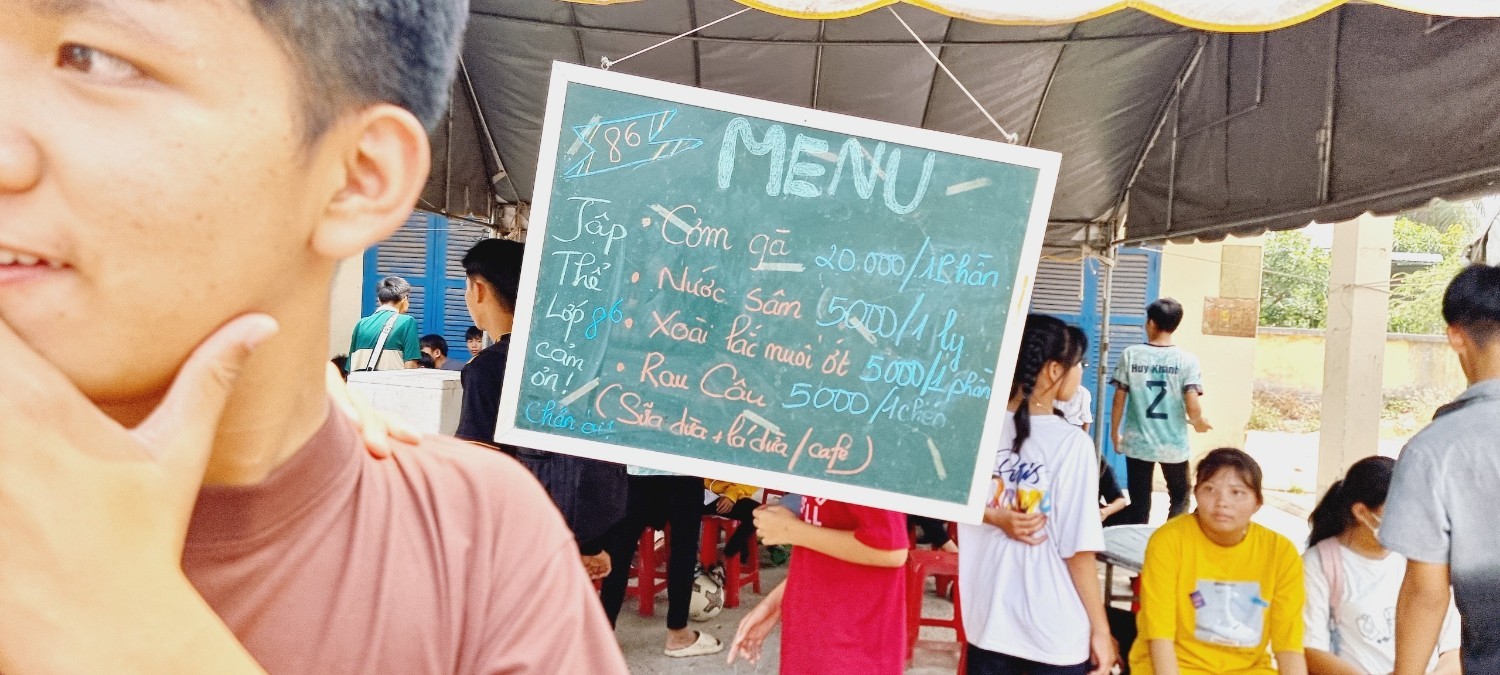 86
MENU
Tập
Thể
Lớp 86
cảm
ơn!
Chân
• Cơm gà 20.000/1Phần
• Nước sâm 5000/1 ly
• Xoài lắc muối ớt 5000/1 phần
• Rau Câu 5000/1chén
(Sữa dừa + lá dứa / cafe)
Huy Khánh
2